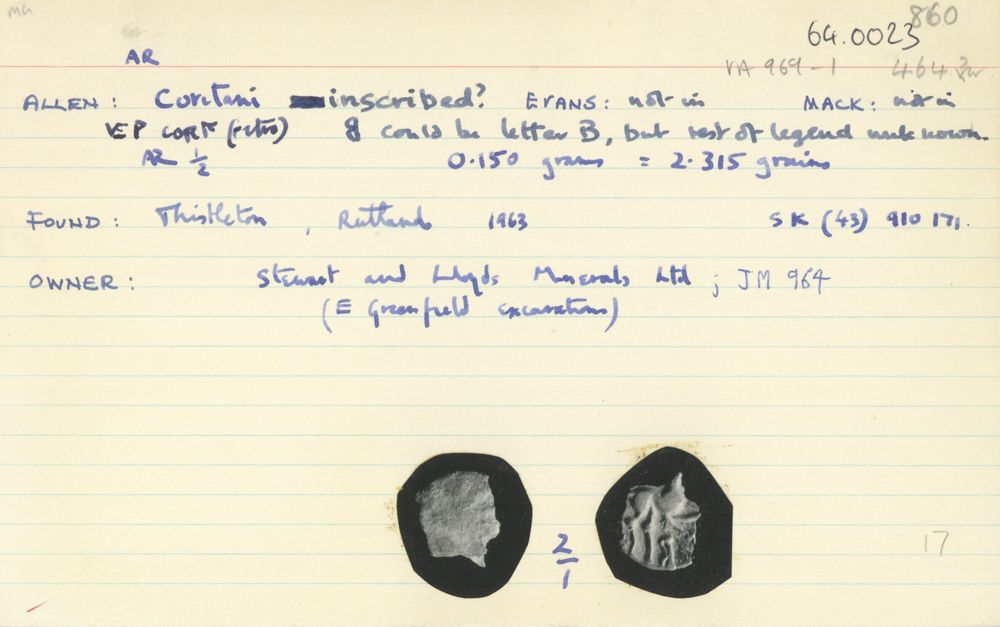 MG
860
64.0023
AR
VA 969-1 464
ALLEN: Coritani inscribed? EVANS: not in MACK: not in
VEP CORF (retro) 8 could be letter B, but rest of legend unknown.
AR 1/2 0.150 grams = 2.315 grains
FOUND: Thistleton, Rutland 1963 SK (43) 910 171.
OWNER: Stewart and Lloyds Minerals Ltd; JM 964
(E Greenfield excavations)
2/1
17